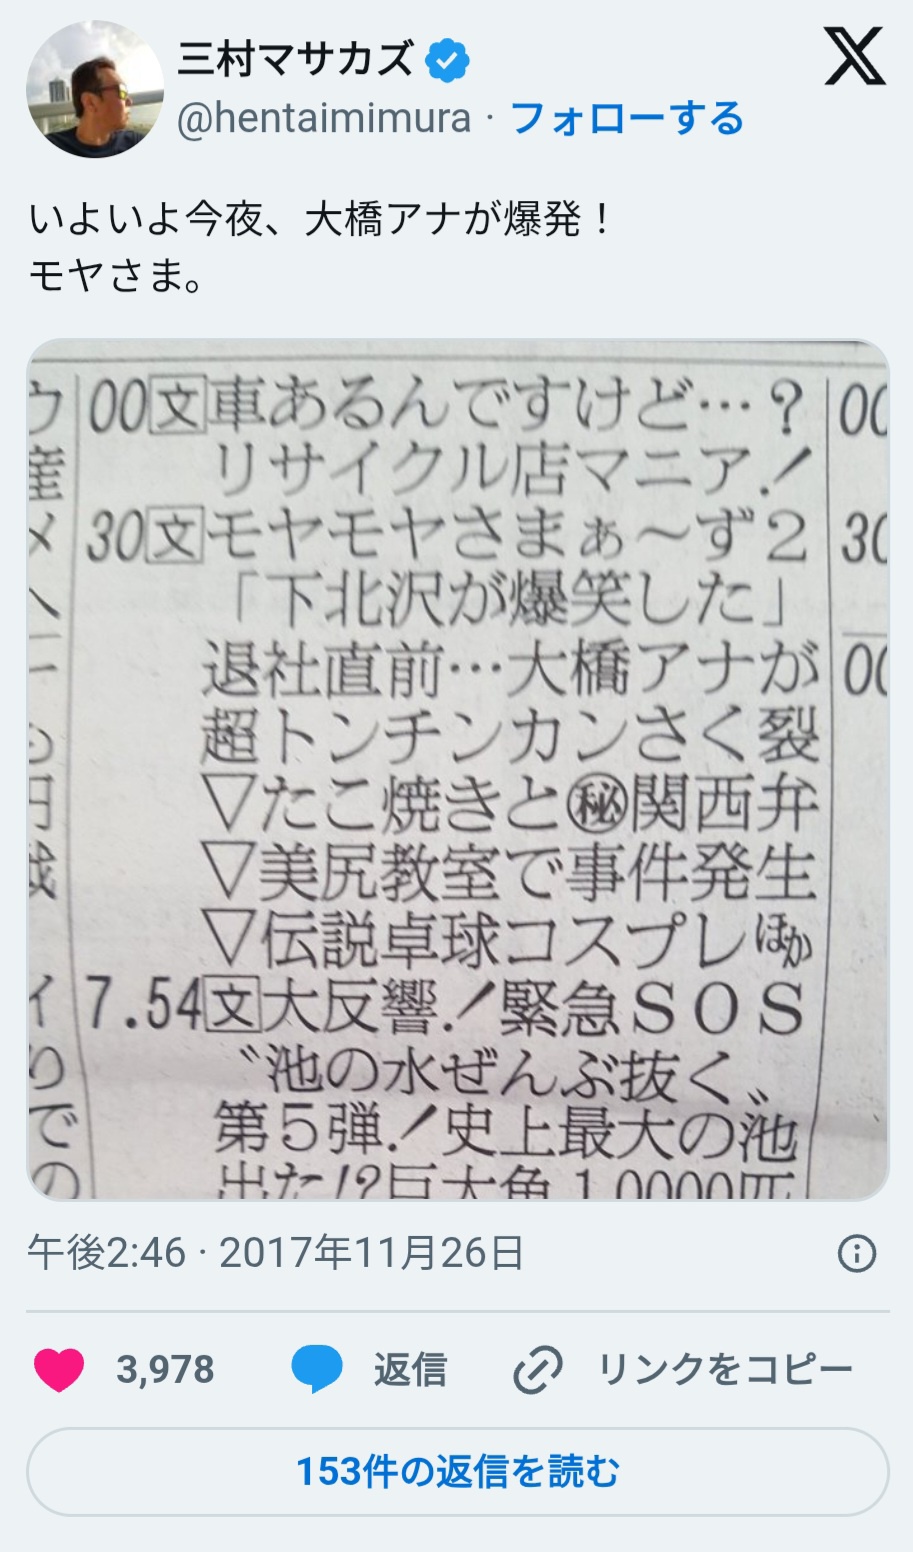 三村マサカズ
@hentaimimura · フォローする
いよいよ今夜、大橋アナが爆発！
モヤさま。
00文車あるんですけど…？
リサイクル店マニア！
30文モヤモヤさまぁ～ず２
「下北沢が爆笑した」
退社直前…大橋アナが
超トンチンカンさく裂
▽たこ焼きと㊙関西弁
▽美尻教室で事件発生
▽伝説卓球コスプレほか
7.54文大反響！緊急ＳＯＳ
〝池の水ぜんぶ抜く〟
第５弾！史上最大の池
出た!?巨大魚10000匹
午後2:46 · 2017年11月26日
3,978 返信 リンクをコピー
153件の返信を読む